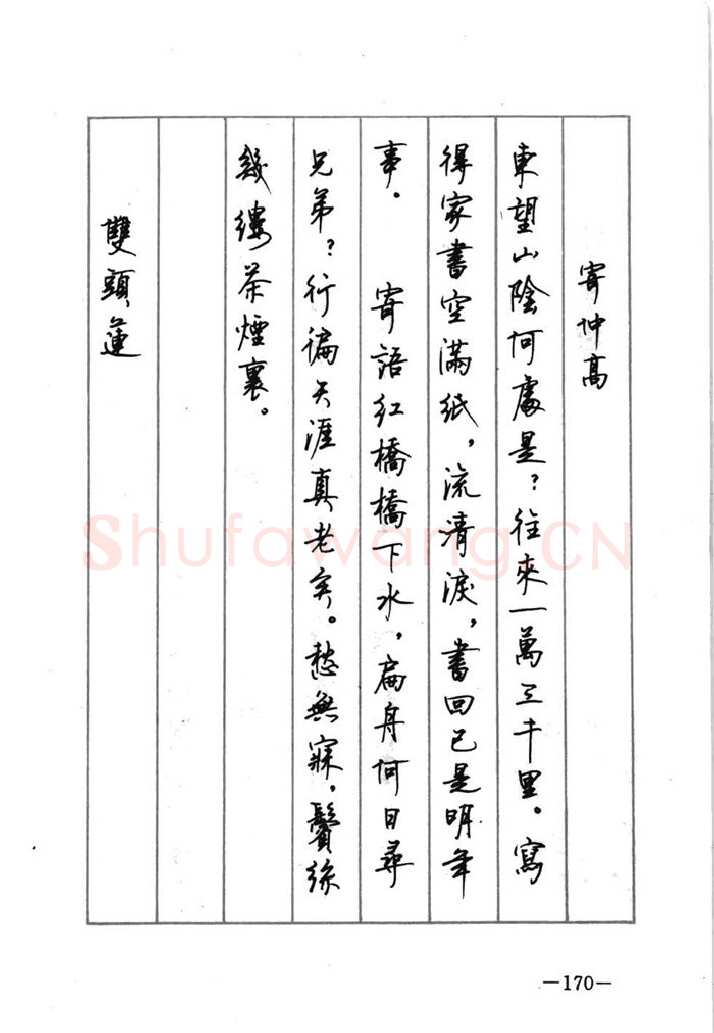 寄仲高
東望山陰何處是？往來一萬三千里。寫
得家書空滿紙，流清淚，書回已是明年
事。 寄語紅橋橋下水，扁舟何日尋
兄弟？行遍天涯真老矣。愁無寐，鬢絲
幾縷茶煙裏。
雙頭蓮
Shufawang.CN
—170—